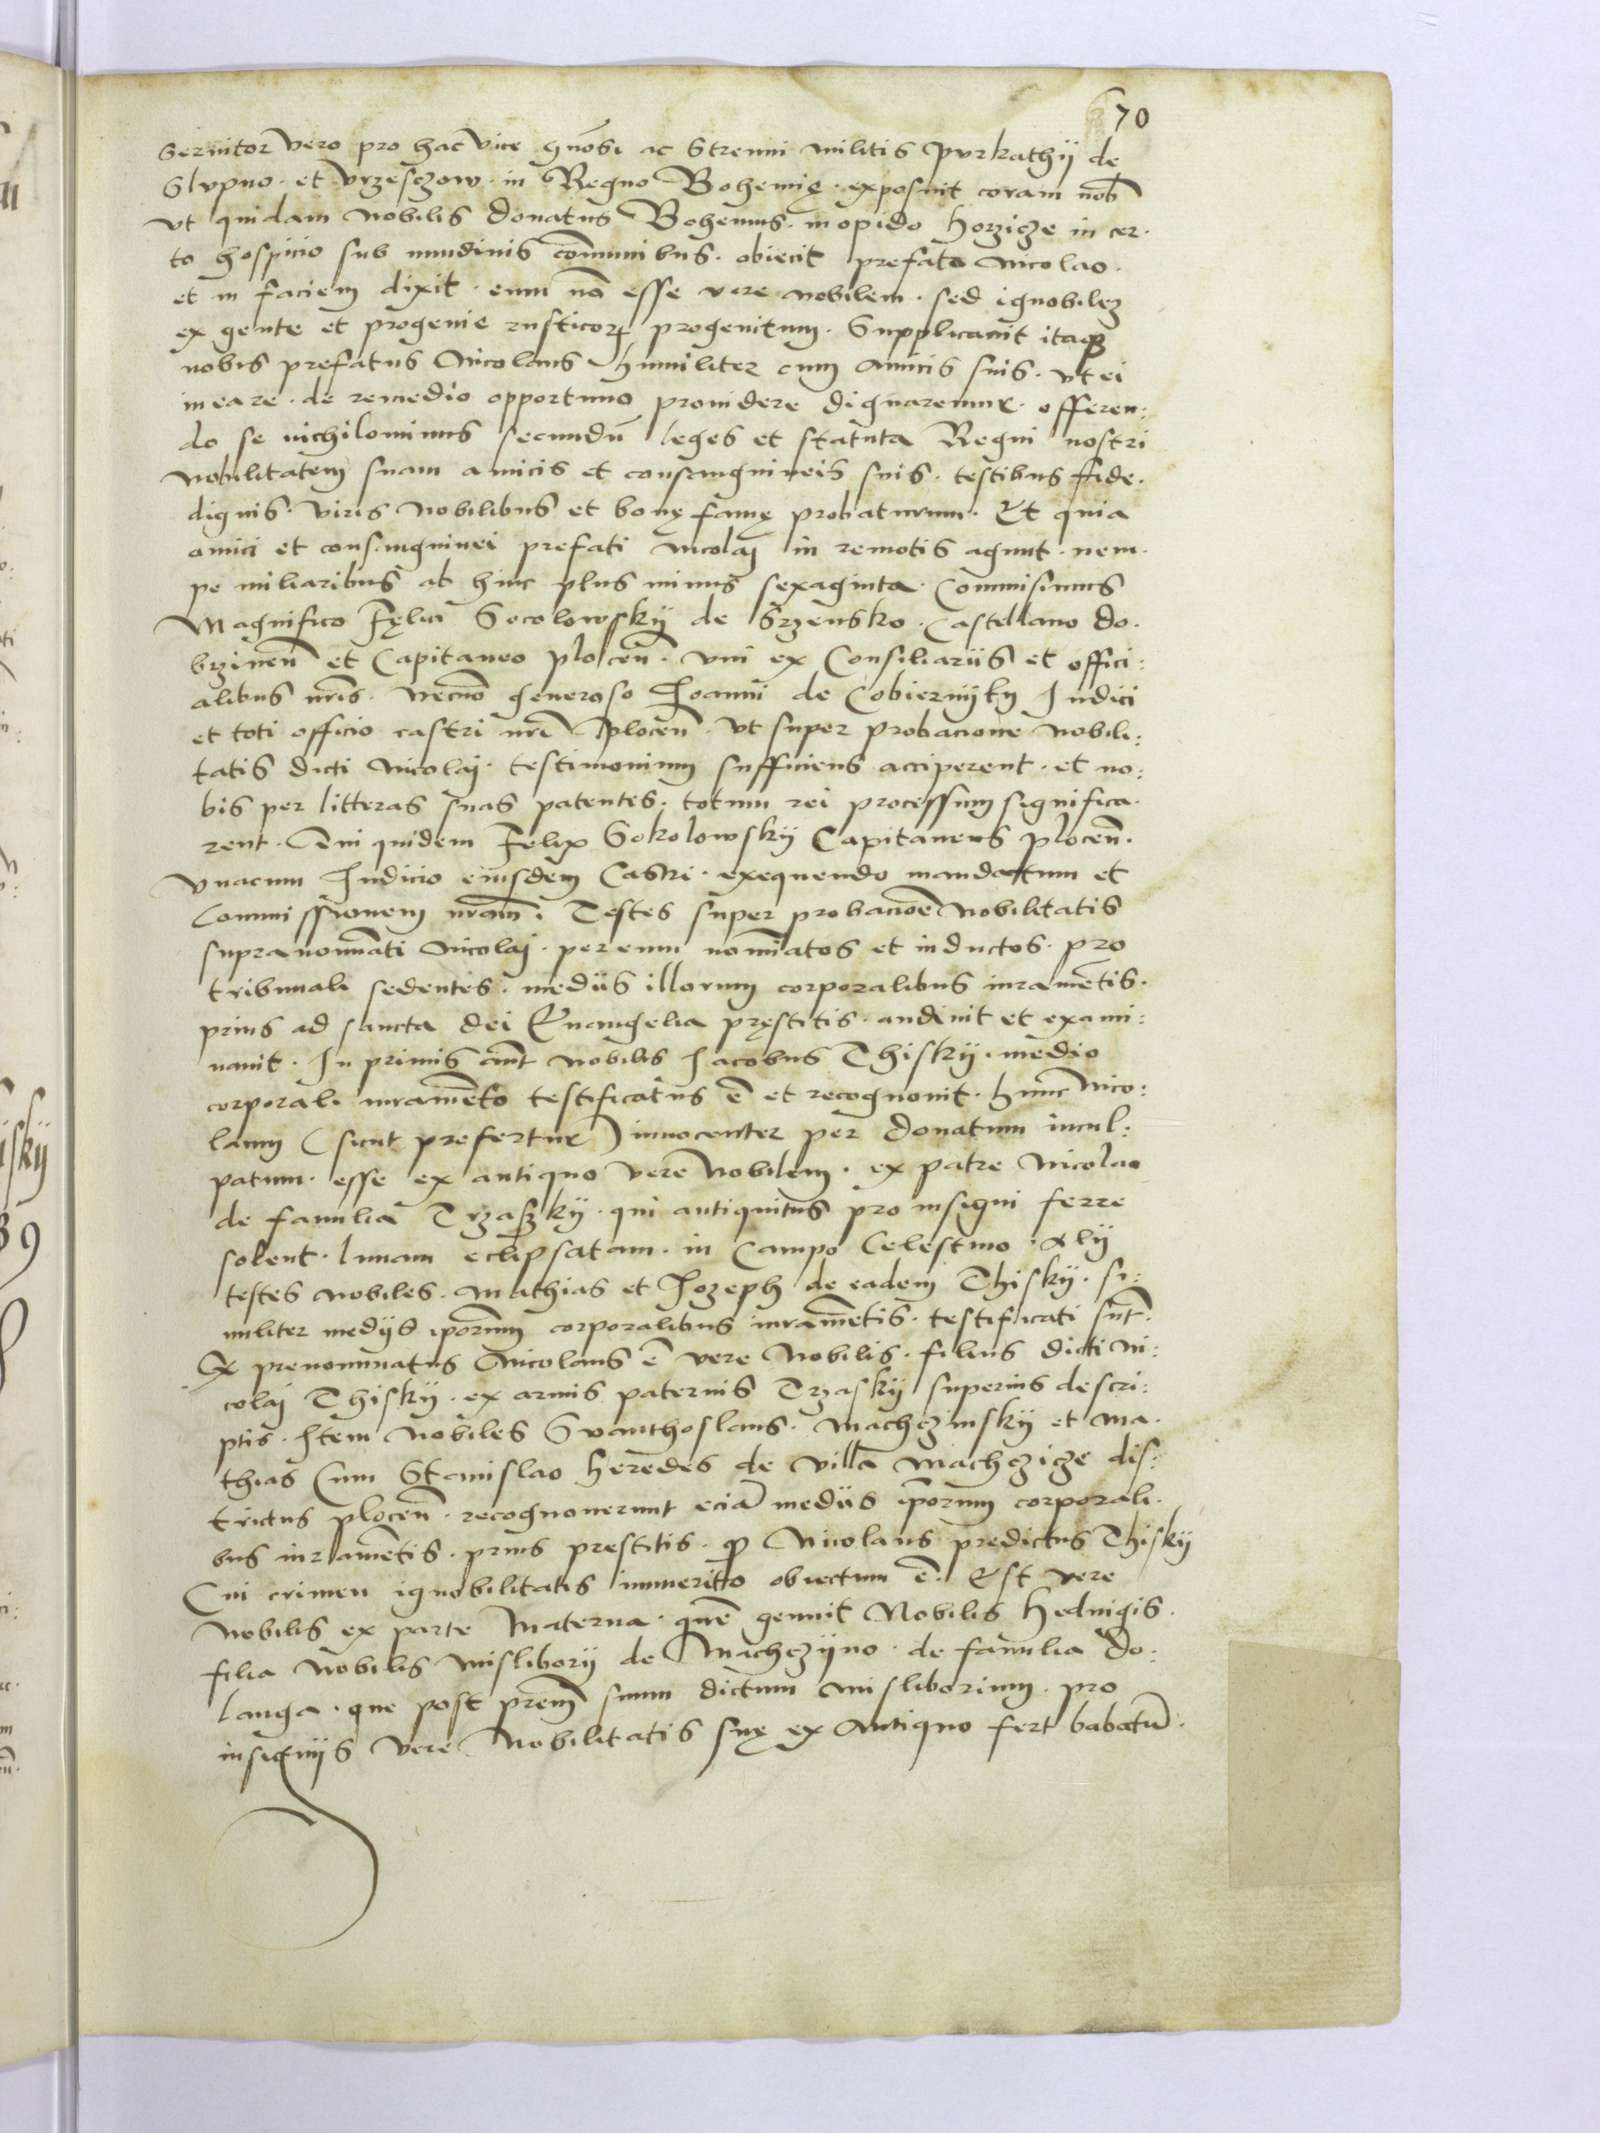 70
Seruitor vero pro hac vice gnosi ac Strenui militis Purkathy de
Slupno et Vrzesczow in Regno Bohemię exposuit coram nob
vt quidam nobilis Donatus Bohemus in opido horzicze in cer
to hospicio sub nundinis comunibus obiecit prefato Nicolao
et in faciem dixit eum no esse vere nobilem sed ignobilez
ex gente et progenie rusticorꝝ progenitum Supplicauit itaqꝫ
nobis prefatus Nicolaus humiliter cum amicis suis vt ei
in ea re de remedio opportuno prouidere dignaremur offeren:
do se nichilominus secundū leges et statuta Regni nostri
Nobilitatem suam amicis et consanguineis suis testibus fide
dignis viris nobilibus et bonę famę probaturum Et quia
amici et consanguinei prefati Nicolaj in remotis agunt nem
pe miliaribus ab hinc plus minus sexaginta Commisimus
Magnifico Fęlici Socolowsky de Srzensko Castellano Do
brzinen et Capitaneo plocen vni ex Consiliariis et offici:
alibus nris necno Generoso Joanni de Cobiernyky Judici
et toti officio castri nri plocen vt super probacione nobili:
tatis dicti Nicolaj testimonium sufficiens acciperent et no:
bis per litteras suas patentes totum rei processum significa
rent Qui quidem Felix Sokolowsky Capitaneus plocen
vnacum Judicio eiusdem Castri exequendo mandatum et
Commissionem nram Testes super probacioe Nobilitatis
supranominati Nicolaj per eum nominatos et inductos pro
tribunali sedentes mediis illorum corporalibus iuramentis
prius ad sancta dei Euangelia pręstitis audiuit et exami:
nauit In primis aut nobilis Jacobus Thisky medio
corporali iuramento testificatus ē et recognouit hunc Nico:
laum (sicut prefertur) innocenter per Donatum incul:
patum esse ex antiquo vere Nobilem ex patre Nicolao
de familia Trzasky qui antiquitus pro insigni ferre
solent lunam eclipsatam in Campo Celestino Alij
testes nobiles Mathias et Jozeph de eadem Thisky si:
militer medijs iporum corporalibus iuramentis testificati sunt
Qꝫ prenominatus Nicolaus ē vere Nobilis filius dicti Ni:
colaj Thisky ex armis paternis Trzasky superius descri:
ptis Item Nobiles Swanthoslaus Machczinsky et Ma
thias cum Stanislao heredes de villa Machczicze dis:
trictus plocen recognouerunt eciā mediis iporum corporali
bus iuramentis prius prestitis qꝫ Nicolaus predictus Thisky
Cui crimen ignobilitatis immerito obiectum ē Est vere
nobilis ex parte Materna quē genuit Nobilis Hedwigis
filia nobilis Mislibory de Machczyno de familia Do:
langa que post prem suum dictum Misliborium pro
insignijs vere Nobilitatis suę ex Antiquo fert babatū